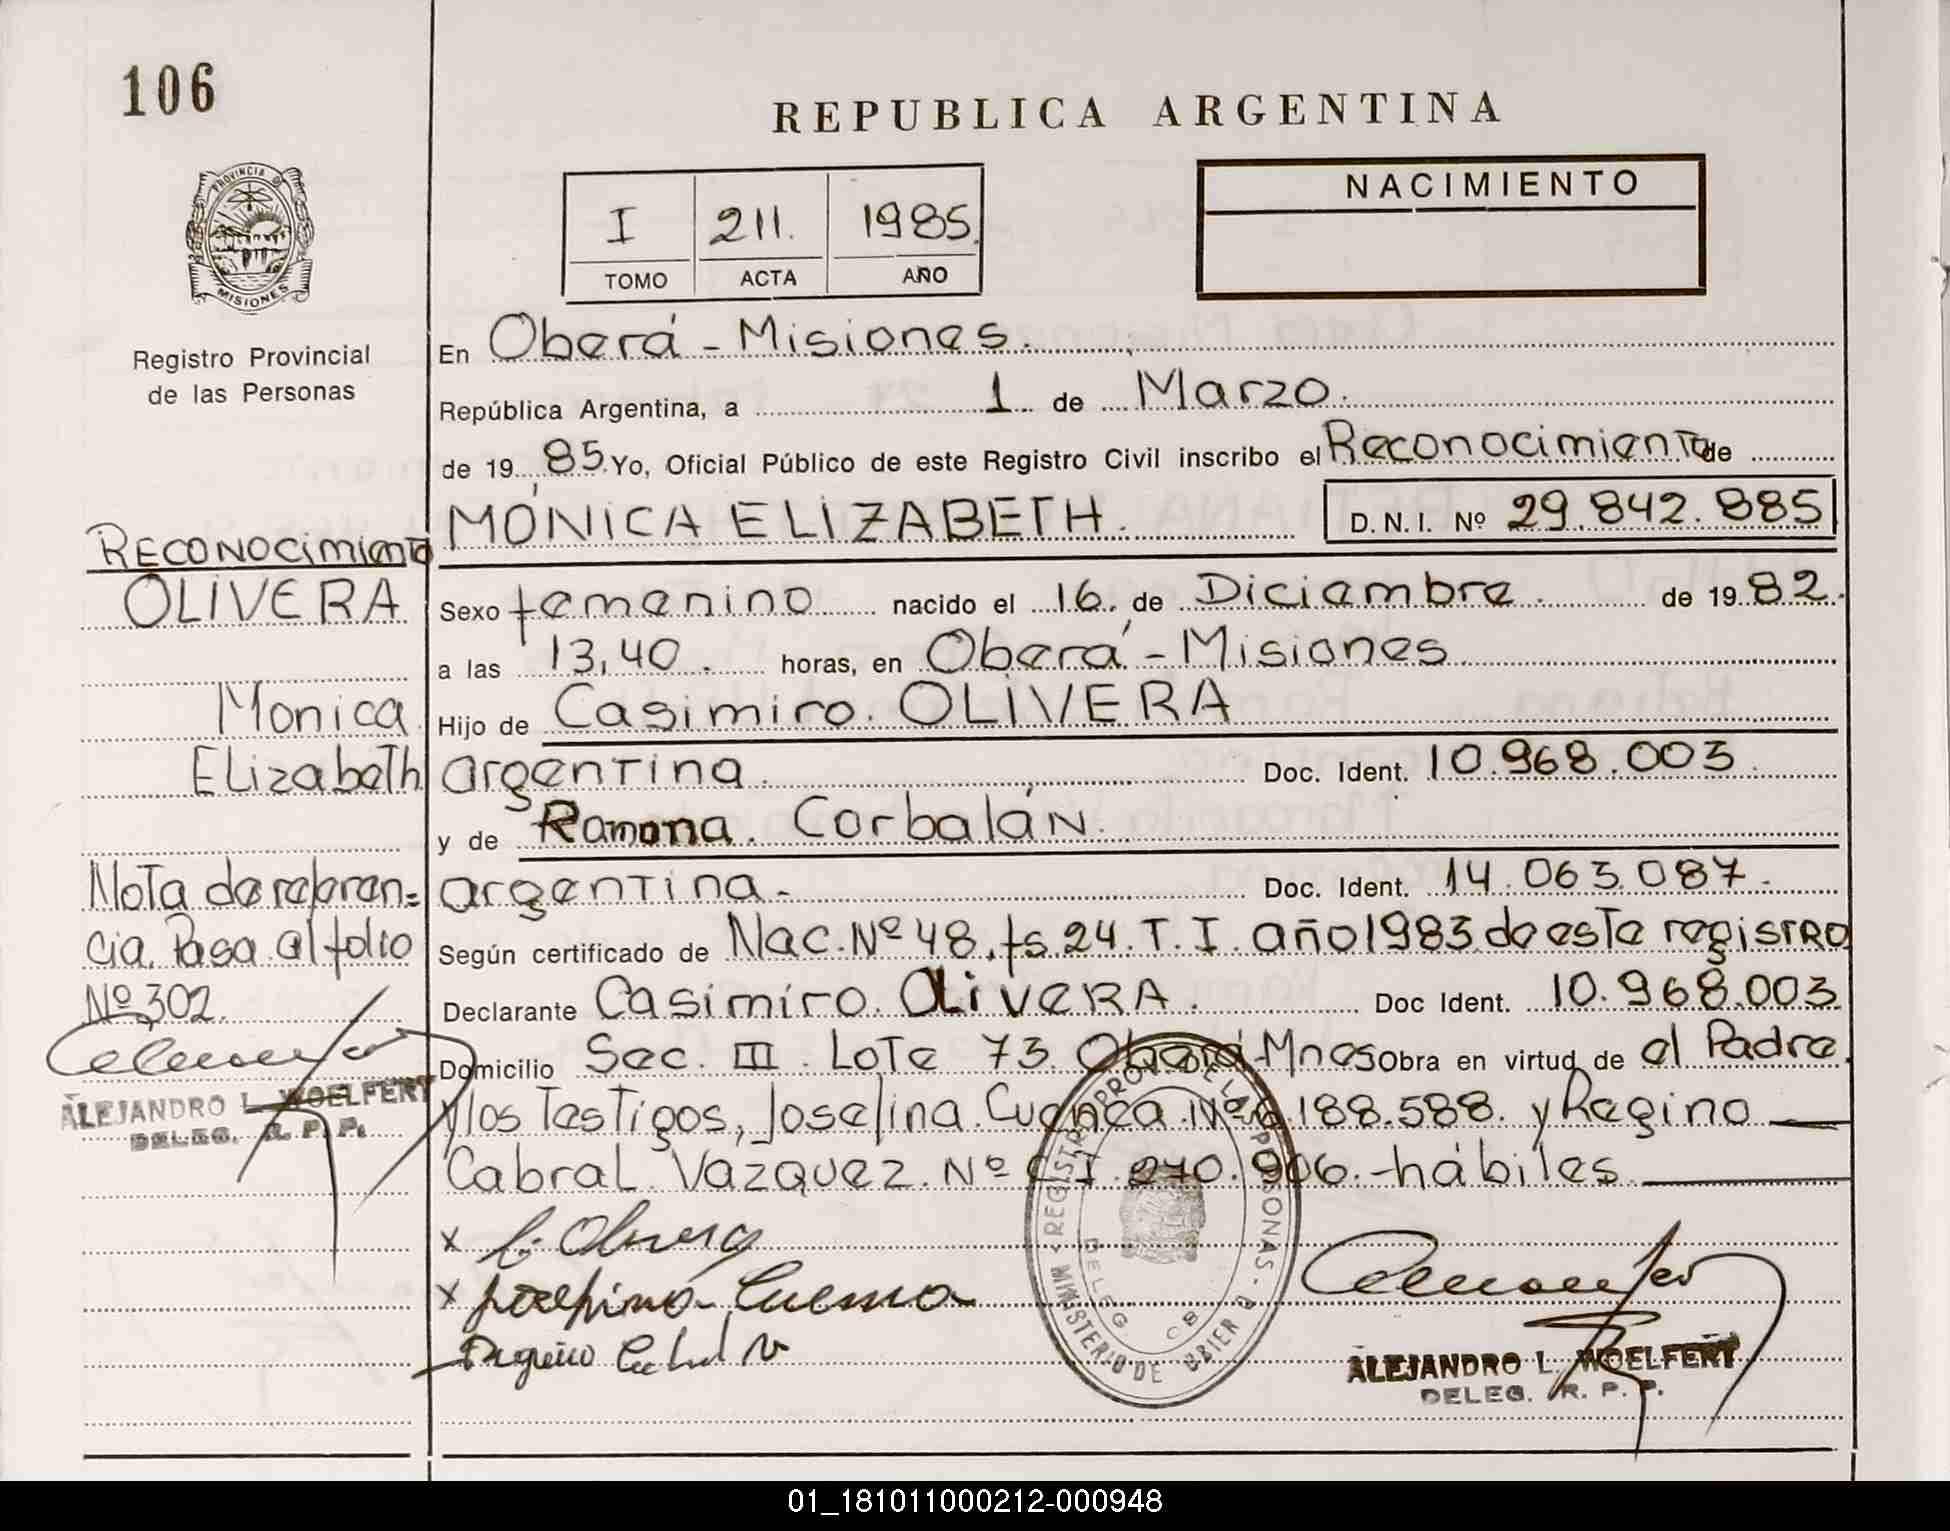 106
REPUBLICA ARGENTINA
PROVINCIA DE
MISIONES
I 211. 1985.
TOMO ACTA AÑO
NACIMIENTO
Registro Provincial
de las Personas
En Oberá - Misiones.
República Argentina, a 1 de Marzo.
de 19 85. Yo, Oficial Público de este Registro Civil inscribo el Reconocimiento de
MÓNICA ELIZABETH. D.N.I. Nº 29.842.885
RECONOCIMIENTO
OLIVERA
Monica
Elizabeth
Nota de referen=
cia. Pasa al folio
Nº 302.
ALEJANDRO L. WOELFERT
DELEG. R. P. P.
Sexo femenino nacido el 16. de Diciembre. de 19 82.
a las 13,40. horas, en Oberá - Misiones
Hijo de Casimiro. OLIVERA
argentina. Doc. Ident. 10.968.003
y de Ramona. Corbalán.
argentina.- Doc. Ident. 14.063.087.
Según certificado de Nac. Nº 48, fs. 24. T. I. año 1983 de este registro
Declarante Casimiro. OLIVERA. Doc Ident. 10.968.003
Domicilio Sec. III. Lote 73. Oberá-Mnes Obra en virtud de el Padre.
y los Testigos, Josefina. Cuenca. Nº 6.188.588. y Regino
Cabral. Vazquez. Nº C I. 270.906.-hábiles
x C. Olivera
x Josefina Cuenca
Regino Cabral V
REGISTRO PROV. DE LAS PERSONAS
MINISTERIO DE GOBIERNO
DELEG.
ALEJANDRO L. WOELFERT
DELEG. R. P. P.
01_181011000212-000948